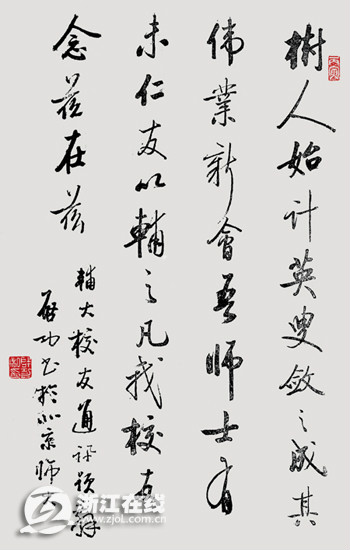 樹人始計英叟斂之成其
偉業新會吾師士有
未仁友以輔之凡我校友
念茲在茲
輔大校友通訊題辭
啟功書於北京師大
浙江在线
www.zjol.com.cn